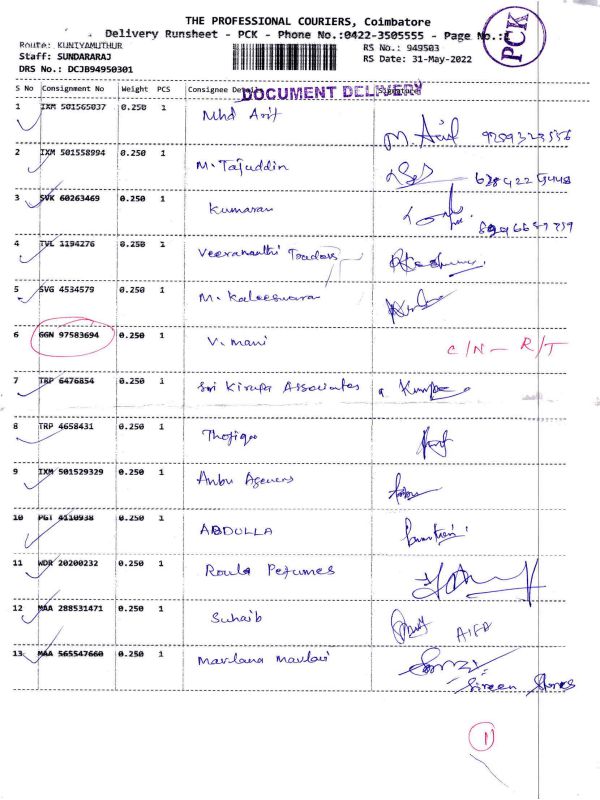 THE PROFESSIONAL COURIERS, Coimbatore
Delivery Runsheet - PCK - Phone No.:0422-3505555 - Page No.:1
PCK
Route: KUNIYAMUTHUR
RS No.: 949503
Staff: SUNDARARAJ
RS Date: 31-May-2022
DRS No.: DCJB94950301
S No Consignment No Weight PCS Consignee Details Signature
DOCUMENT DELIVERY
1 IXM 501565037 0.250 1 Mhd Arif M. Asif
2 IXM 501558994 0.250 1 M. Tajuddin
3 SVK 60263469 0.250 1 Kumaran
4 TVL 1194276 0.250 1 Veerananthi Traders
5 SVG 4534579 0.250 1 M. Kaleeswara
6 GGN 97583694 0.250 1 V. mani C/N - R/T
7 TRP 6476854 0.250 1 Sri Kirupa Associates
8 TRP 4658431 0.250 1
9 IXM 501529329 0.250 1 Anbu Agencys
10 PGT 4110938 0.250 1 ABDULLA
11 WDR 20200232 0.250 1 Roula Pefumes
12 MAA 288531471 0.250 1 Suhaib
13 MAA 565547660 0.250 1 Mavlana Mavlavi
Sireen Stores
1